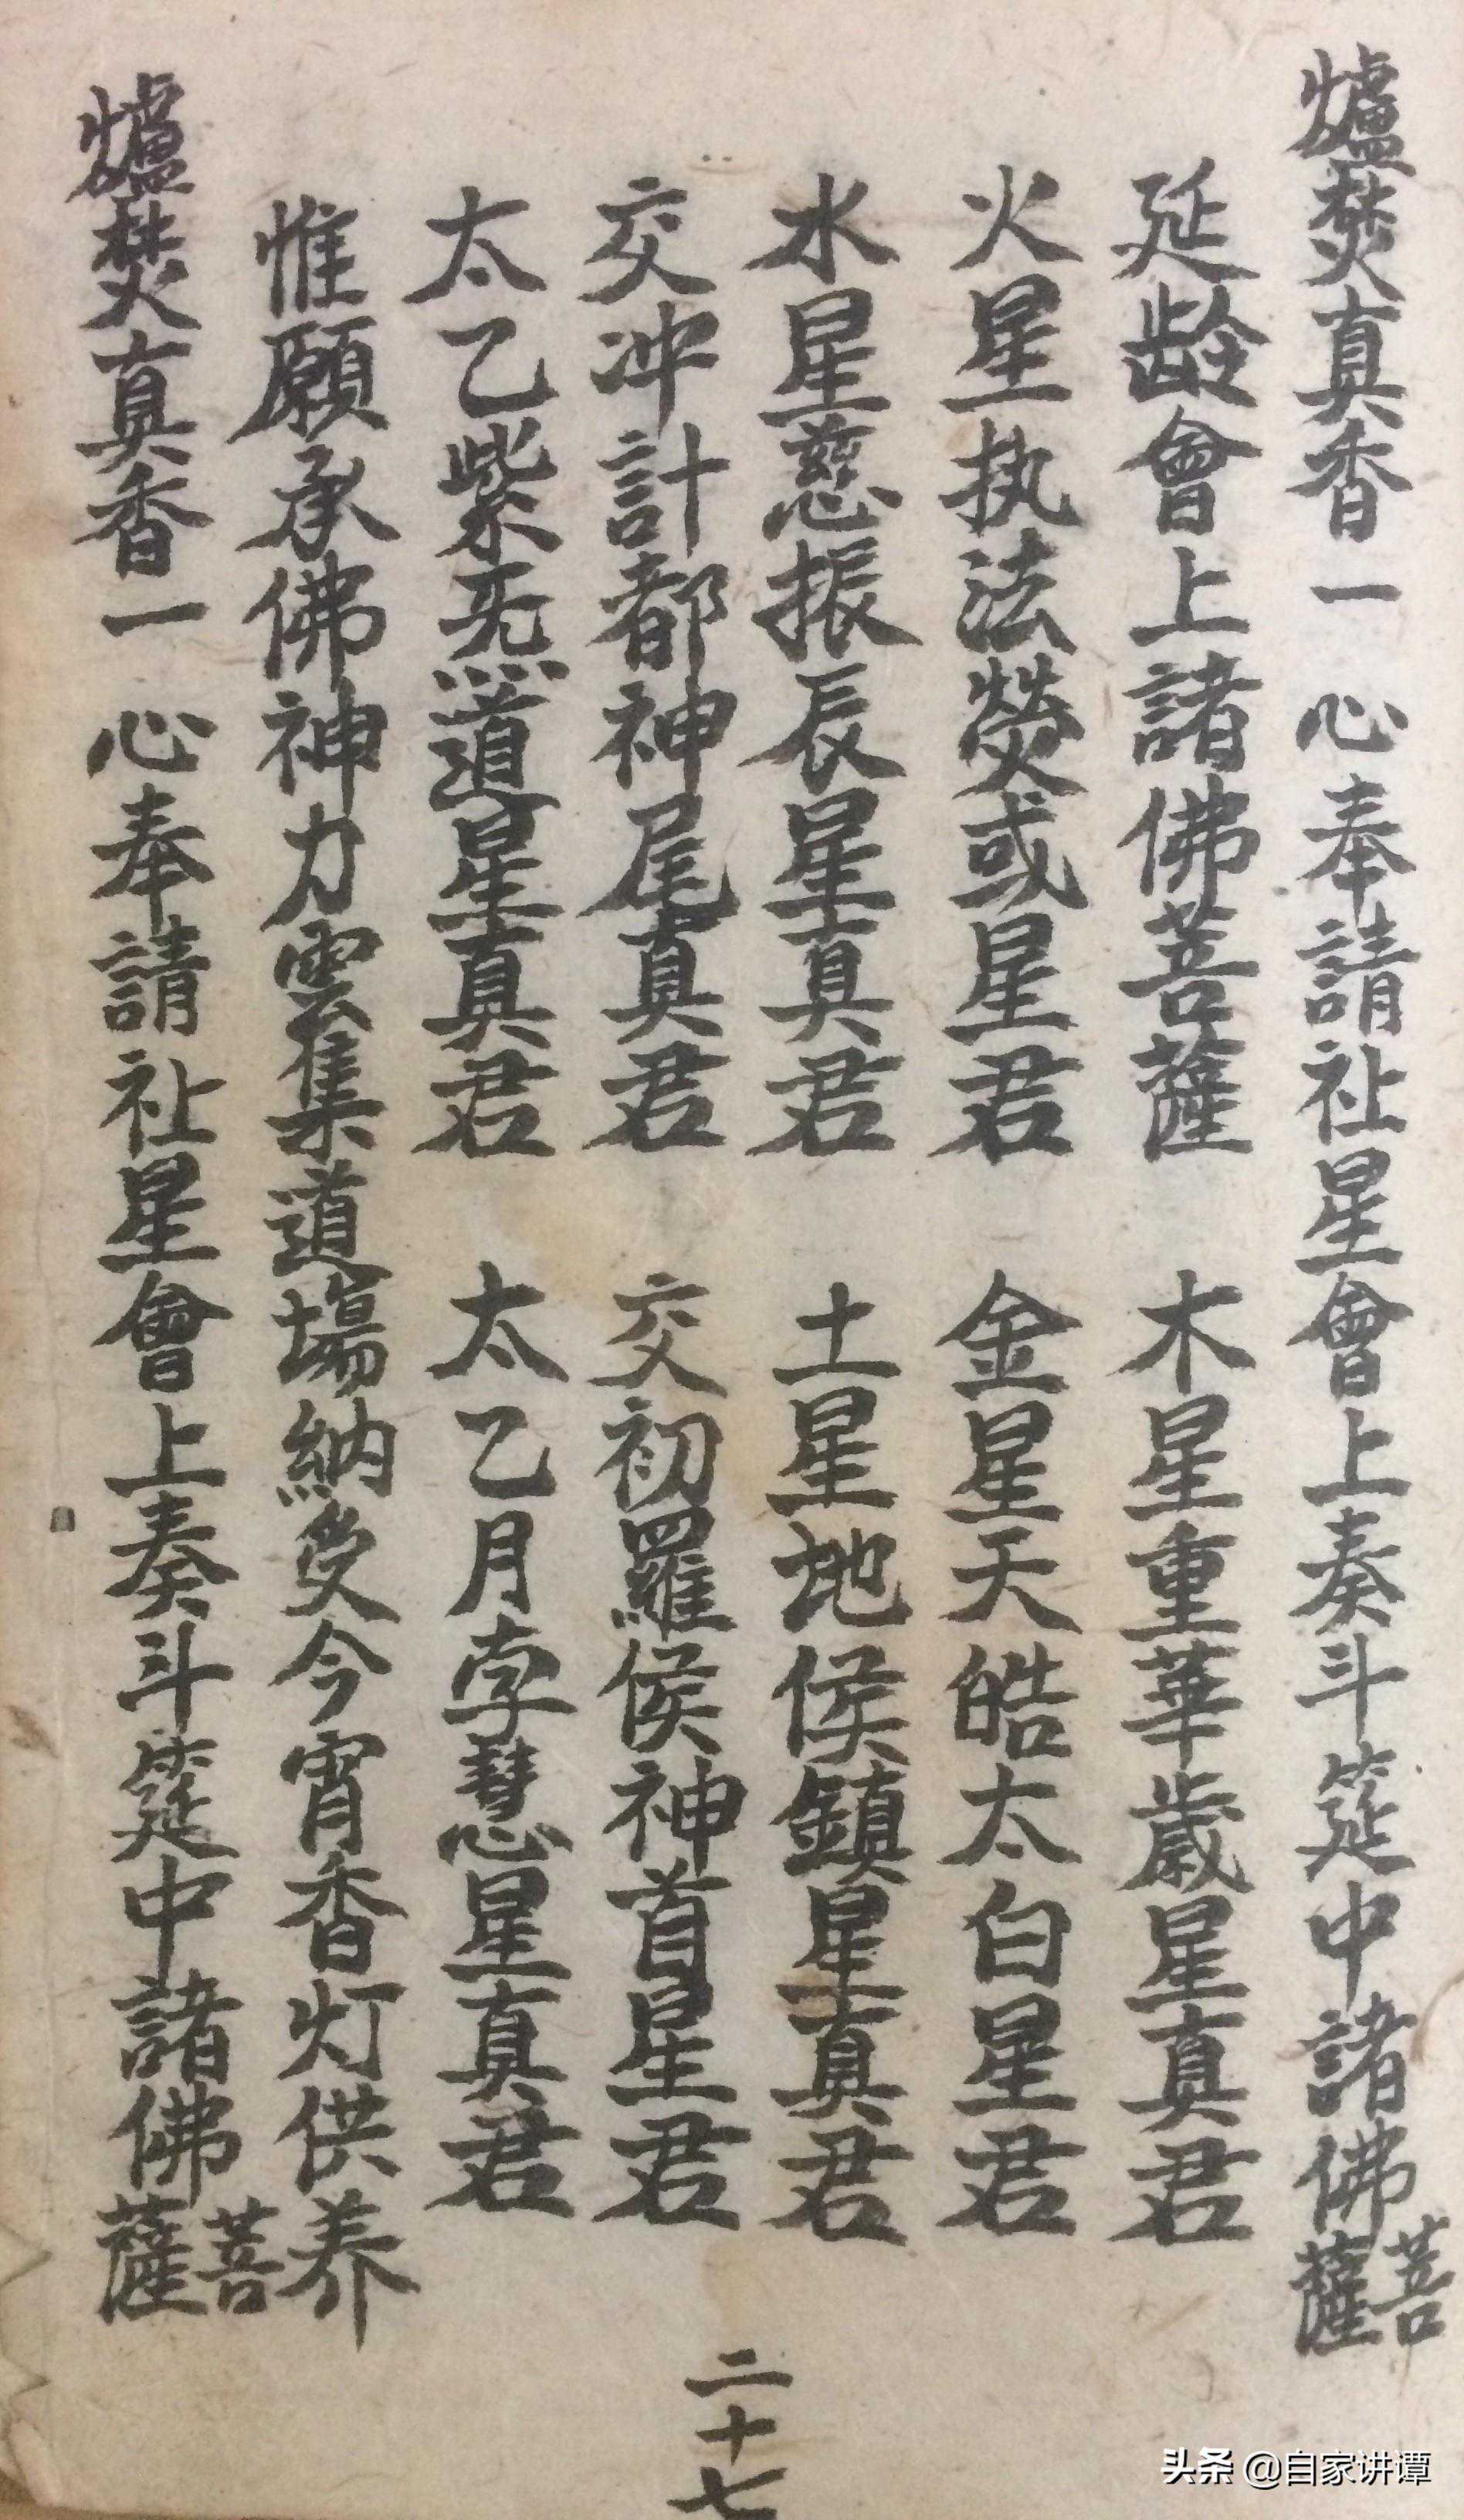 爐焚真香一心奉請祉星會上奏斗筵中諸佛菩薩
延齡會上諸佛菩薩　木星重華歲星真君
火星执法熒或星君　金星天皓太白星君
水星慈振辰星真君　土星地侯鎮星真君
交冲計都神尾真君　交初羅侯神首星君
太乙紫炁道星真君　太乙月孛慧星真君
惟願承佛神力雲集道場納受今宵香灯供养
爐焚真香一心奉請祉星會上奏斗筵中諸佛菩薩
二十七
头条 @自家讲谭